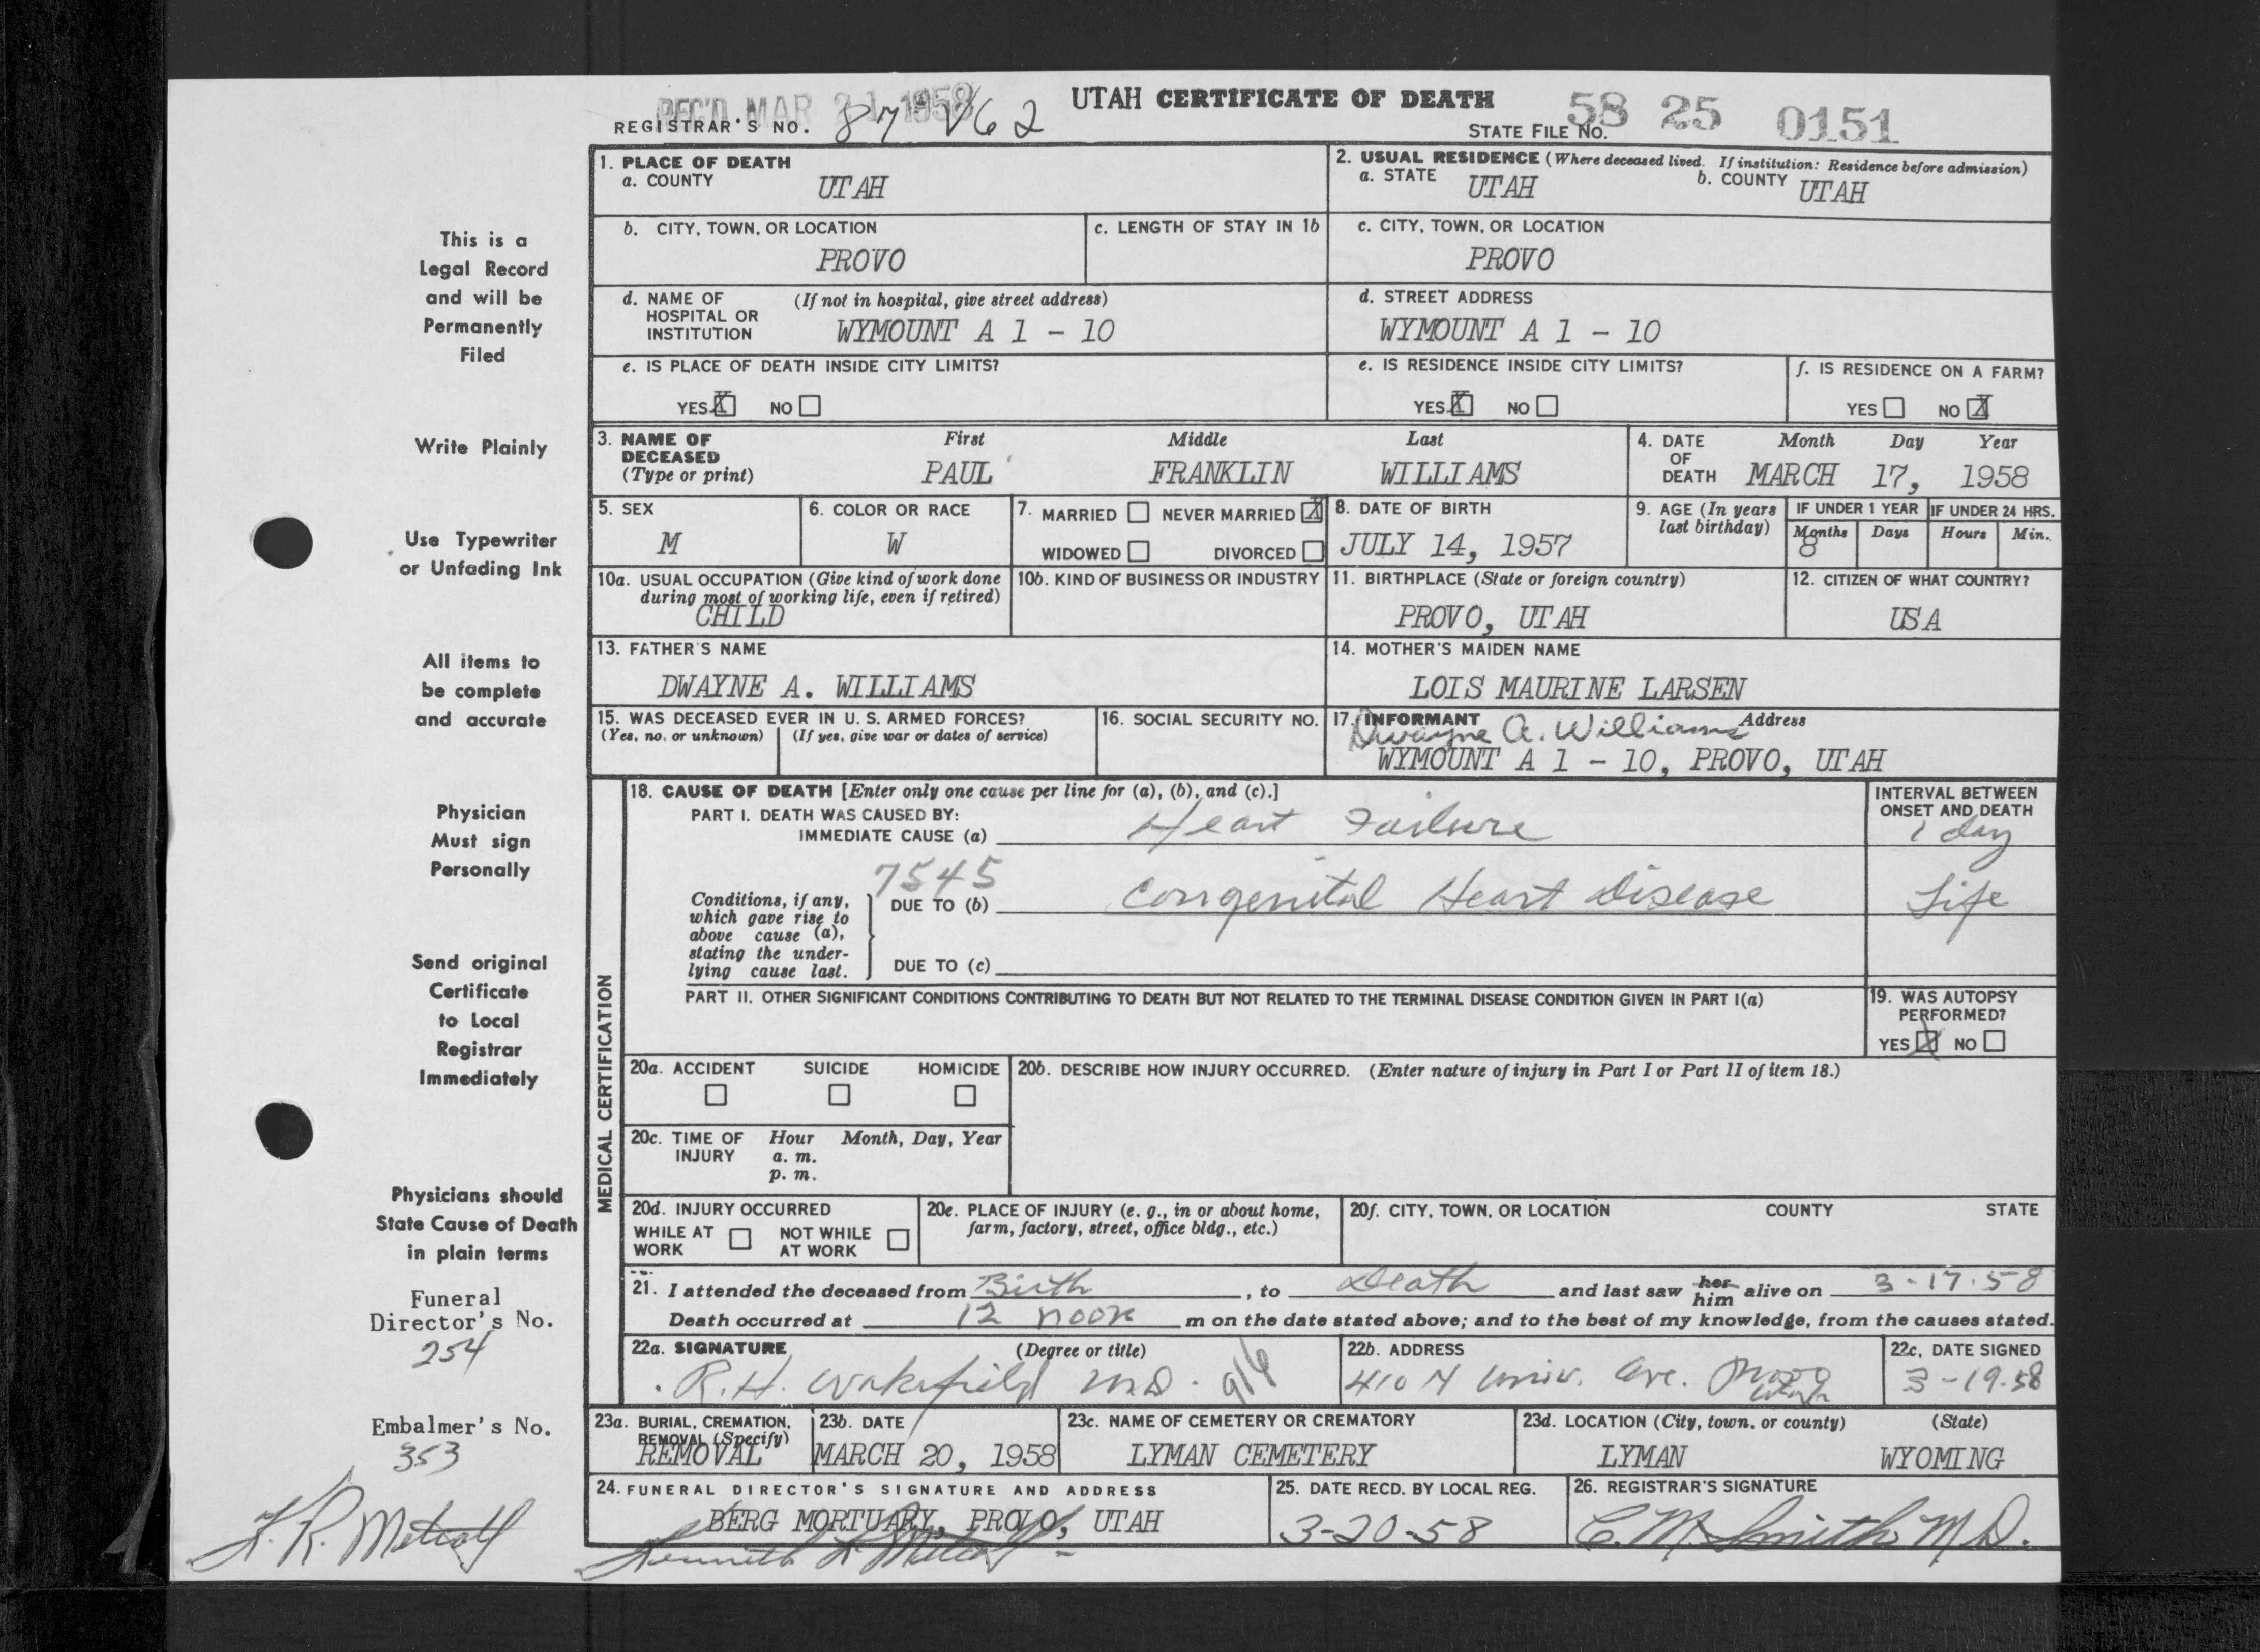 REC'D MAR 21 1958
UTAH CERTIFICATE OF DEATH
REGISTRAR'S NO. 87 V62
STATE FILE NO. 58 25 0151
This is a
Legal Record
and will be
Permanently
Filed
Write Plainly
Use Typewriter
or Unfading Ink
All items to
be complete
and accurate
Physician
Must sign
Personally
Send original
Certificate
to Local
Registrar
Immediately
Physicians should
State Cause of Death
in plain terms
Funeral
Director's No.
254
Embalmer's No.
353
1. PLACE OF DEATH
a. COUNTY UTAH
2. USUAL RESIDENCE (Where deceased lived. If institution: Residence before admission)
a. STATE UTAH b. COUNTY UTAH
b. CITY, TOWN, OR LOCATION
PROVO
c. LENGTH OF STAY IN 1b
c. CITY, TOWN, OR LOCATION
PROVO
d. NAME OF HOSPITAL OR INSTITUTION (If not in hospital, give street address)
WYMOUNT A 1 - 10
d. STREET ADDRESS
WYMOUNT A 1 - 10
e. IS PLACE OF DEATH INSIDE CITY LIMITS?
YES X NO
e. IS RESIDENCE INSIDE CITY LIMITS?
YES X NO
f. IS RESIDENCE ON A FARM?
YES NO X
3. NAME OF DECEASED (Type or print) First Middle Last
PAUL FRANKLIN WILLIAMS
4. DATE OF DEATH Month Day Year
MARCH 17, 1958
5. SEX
M
6. COLOR OR RACE
W
7. MARRIED NEVER MARRIED X
WIDOWED DIVORCED
8. DATE OF BIRTH
JULY 14, 1957
9. AGE (In years last birthday)
IF UNDER 1 YEAR IF UNDER 24 HRS.
Months Days Hours Min.
8
10a. USUAL OCCUPATION (Give kind of work done during most of working life, even if retired)
CHILD
10b. KIND OF BUSINESS OR INDUSTRY
11. BIRTHPLACE (State or foreign country)
PROVO, UTAH
12. CITIZEN OF WHAT COUNTRY?
USA
13. FATHER'S NAME
DWAYNE A. WILLIAMS
14. MOTHER'S MAIDEN NAME
LOIS MAURINE LARSEN
15. WAS DECEASED EVER IN U. S. ARMED FORCES?
(Yes, no, or unknown) (If yes, give war or dates of service)
16. SOCIAL SECURITY NO.
17. INFORMANT Address
Dwayne A. Williams
WYMOUNT A 1 - 10, PROVO, UTAH
MEDICAL CERTIFICATION
18. CAUSE OF DEATH [Enter only one cause per line for (a), (b), and (c).]
PART I. DEATH WAS CAUSED BY:
IMMEDIATE CAUSE (a) Heart Failure
INTERVAL BETWEEN ONSET AND DEATH
1 day
7545
Conditions, if any, which gave rise to above cause (a), stating the underlying cause last.
DUE TO (b) Congenital Heart Disease
Life
DUE TO (c)
PART II. OTHER SIGNIFICANT CONDITIONS CONTRIBUTING TO DEATH BUT NOT RELATED TO THE TERMINAL DISEASE CONDITION GIVEN IN PART I(a)
19. WAS AUTOPSY PERFORMED?
YES X NO
20a. ACCIDENT SUICIDE HOMICIDE
20b. DESCRIBE HOW INJURY OCCURRED. (Enter nature of injury in Part I or Part II of item 18.)
20c. TIME OF INJURY Hour Month, Day, Year
a. m.
p. m.
20d. INJURY OCCURRED
WHILE AT WORK NOT WHILE AT WORK
20e. PLACE OF INJURY (e. g., in or about home, farm, factory, street, office bldg., etc.)
20f. CITY, TOWN, OR LOCATION COUNTY STATE
21. I attended the deceased from Birth, to Death and last saw her him alive on 3-17-58
Death occurred at 12 noon m on the date stated above; and to the best of my knowledge, from the causes stated.
22a. SIGNATURE (Degree or title)
R.H. Wakefield M.D. 916
22b. ADDRESS
410 N Univ. Ave. Provo Utah
22c. DATE SIGNED
3-19-58
23a. BURIAL, CREMATION, REMOVAL (Specify)
REMOVAL
23b. DATE
MARCH 20, 1958
23c. NAME OF CEMETERY OR CREMATORY
LYMAN CEMETERY
23d. LOCATION (City, town, or county) (State)
LYMAN WYOMING
24. FUNERAL DIRECTOR'S SIGNATURE AND ADDRESS
BERG MORTUARY, PROVO, UTAH
25. DATE RECD. BY LOCAL REG.
3-20-58
26. REGISTRAR'S SIGNATURE
C. M. Smith M.D.
K. R. Metcalf
Kenneth R Metcalf